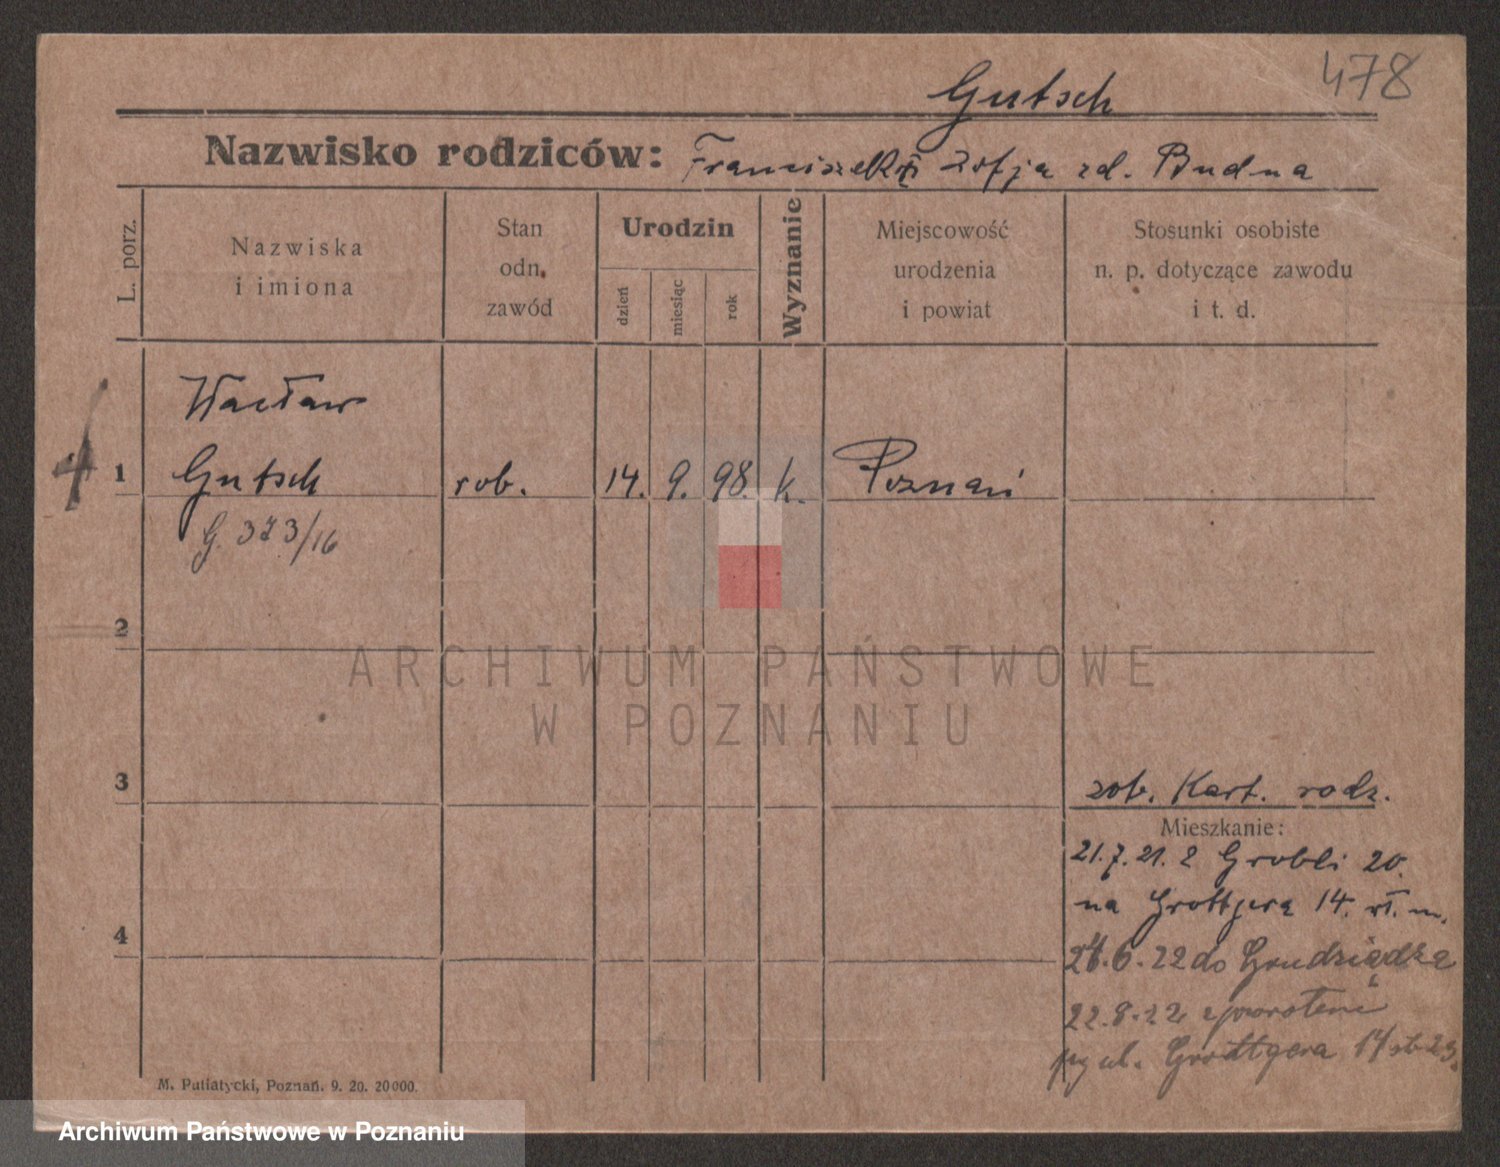 478
Gutsch
Nazwisko rodziców: Franciszek i Zofja zd. Budna
L. porz.
Nazwiska i imiona
Stan odn. zawód
Urodzin
dzień
miesiąc
rok
Wyznanie
Miejscowość urodzenia i powiat
Stosunki osobiste n. p. dotyczące zawodu i t. d.
Wacław
1 Gutsch rob. 14. 9. 98. k. Poznań
G. 373/16
2
ARCHIWUM PAŃSTWOWE
W POZNANIU
3
zob. Kart. rodz.
Mieszkanie:
21.7.21. z Grobli 20.
na Grottgera 14. m.
4
24.6.22 do Grudziądza
22.8.22 z powrotem
ul. Grottgera 14
M. Putiatycki, Poznań. 9. 20. 20000.
Archiwum Państwowe w Poznaniu